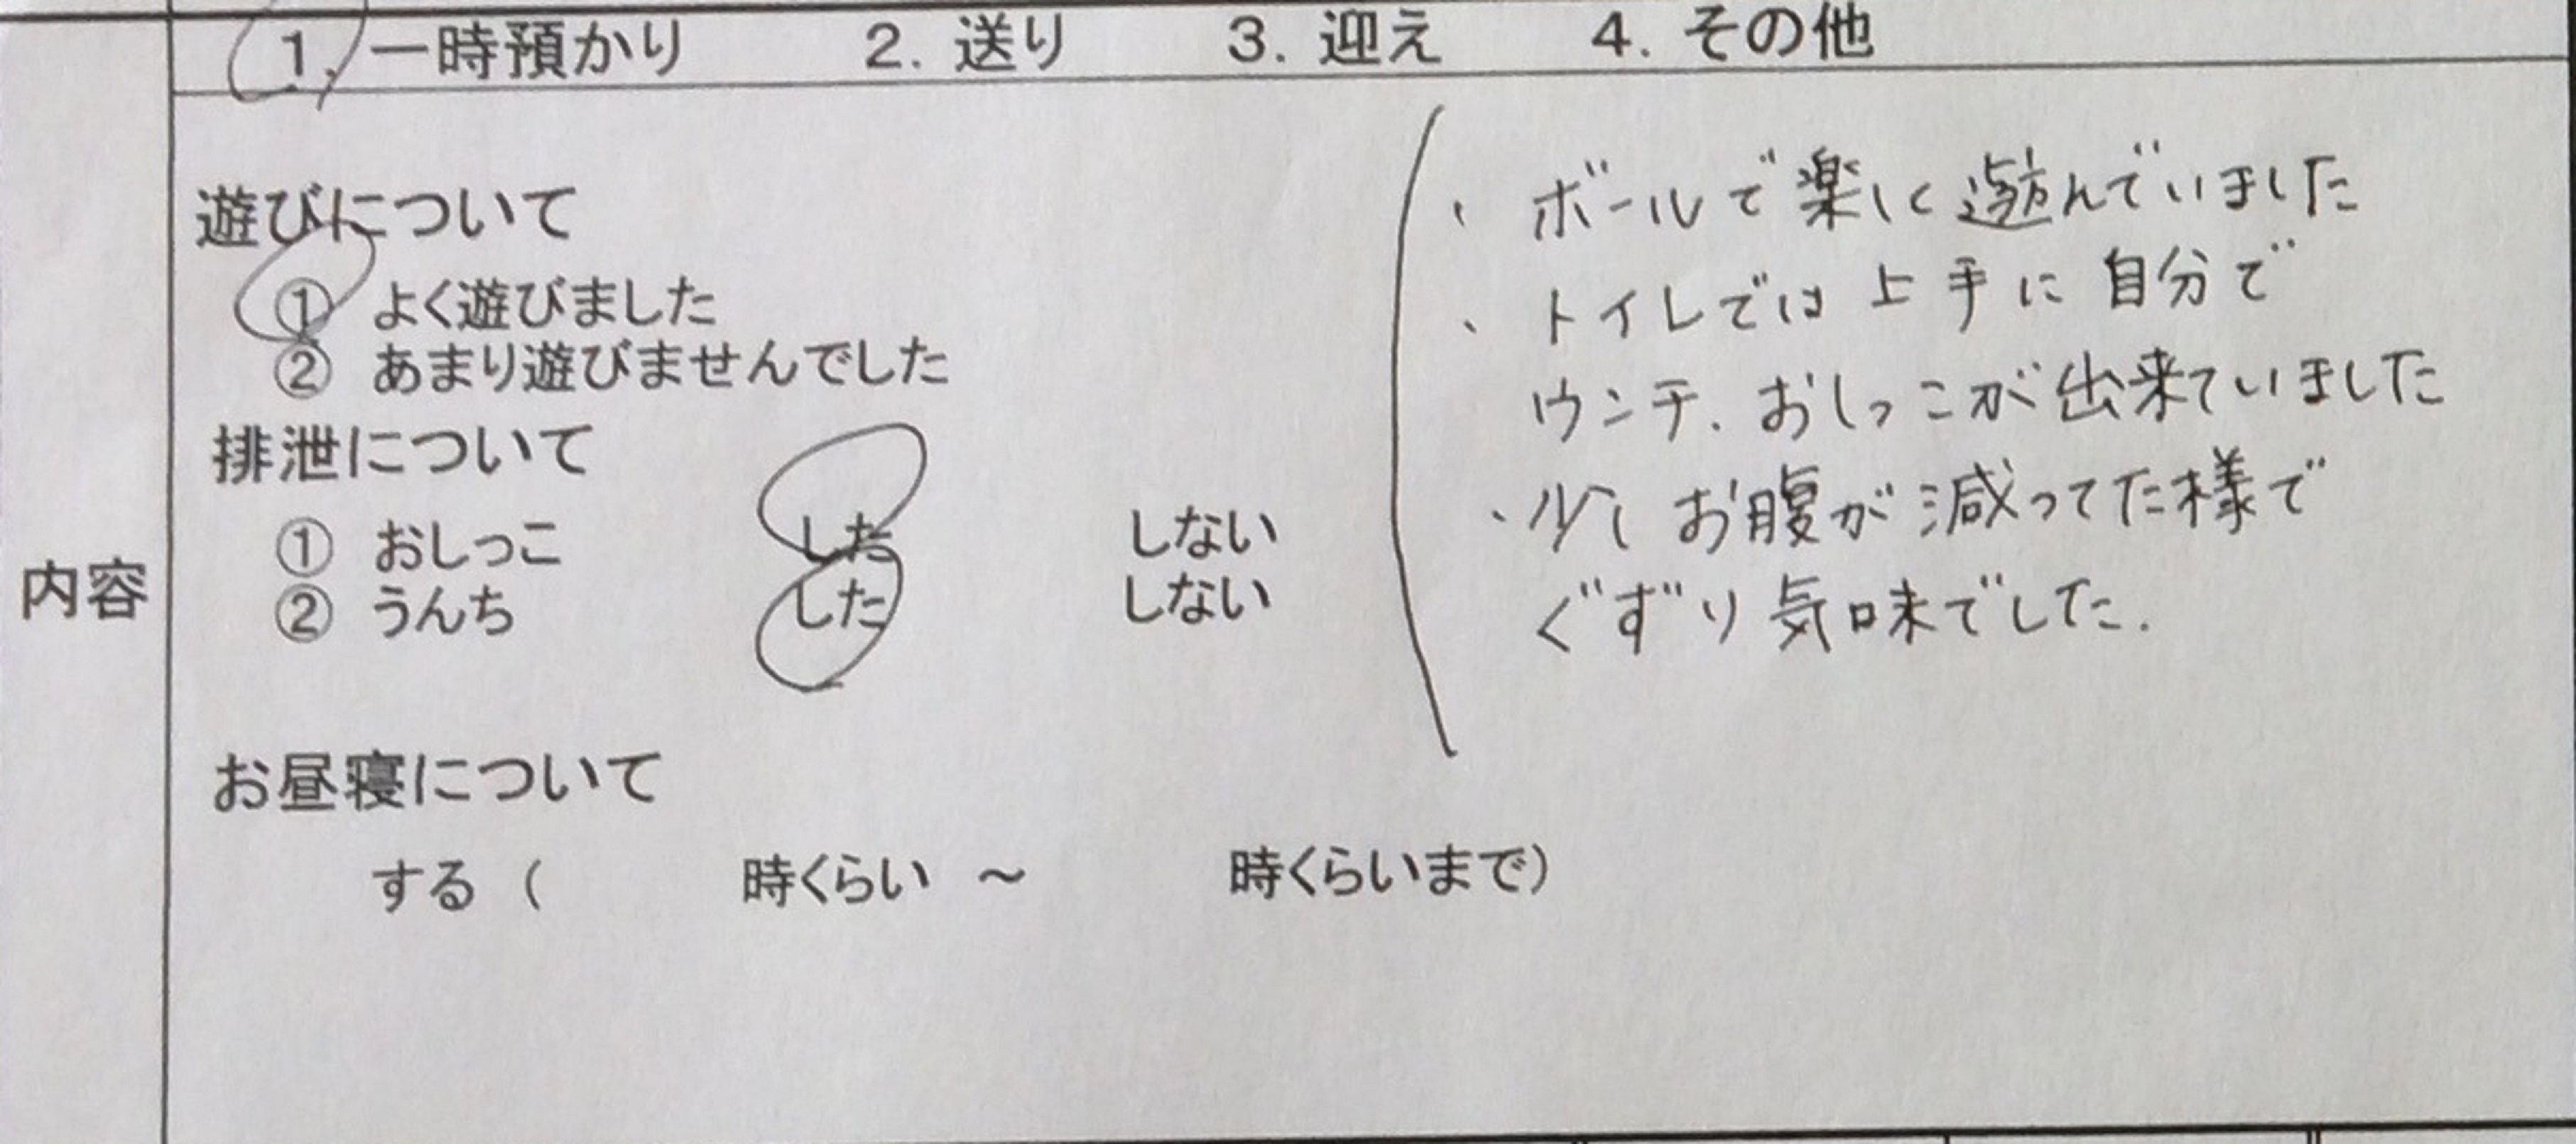 1. 一時預かり 2. 送り 3. 迎え 4. その他
内容
遊びについて
① よく遊びました
② あまり遊びませんでした
排泄について
① おしっこ した しない
② うんち した しない
お昼寝について
する ( 時くらい ～ 時くらいまで)
・ボールで楽しく遊んでいました
・トイレでは上手に自分で
ウンチ、おしっこが出来ていました
・少しお腹が減ってた様で
ぐずり気味でした.